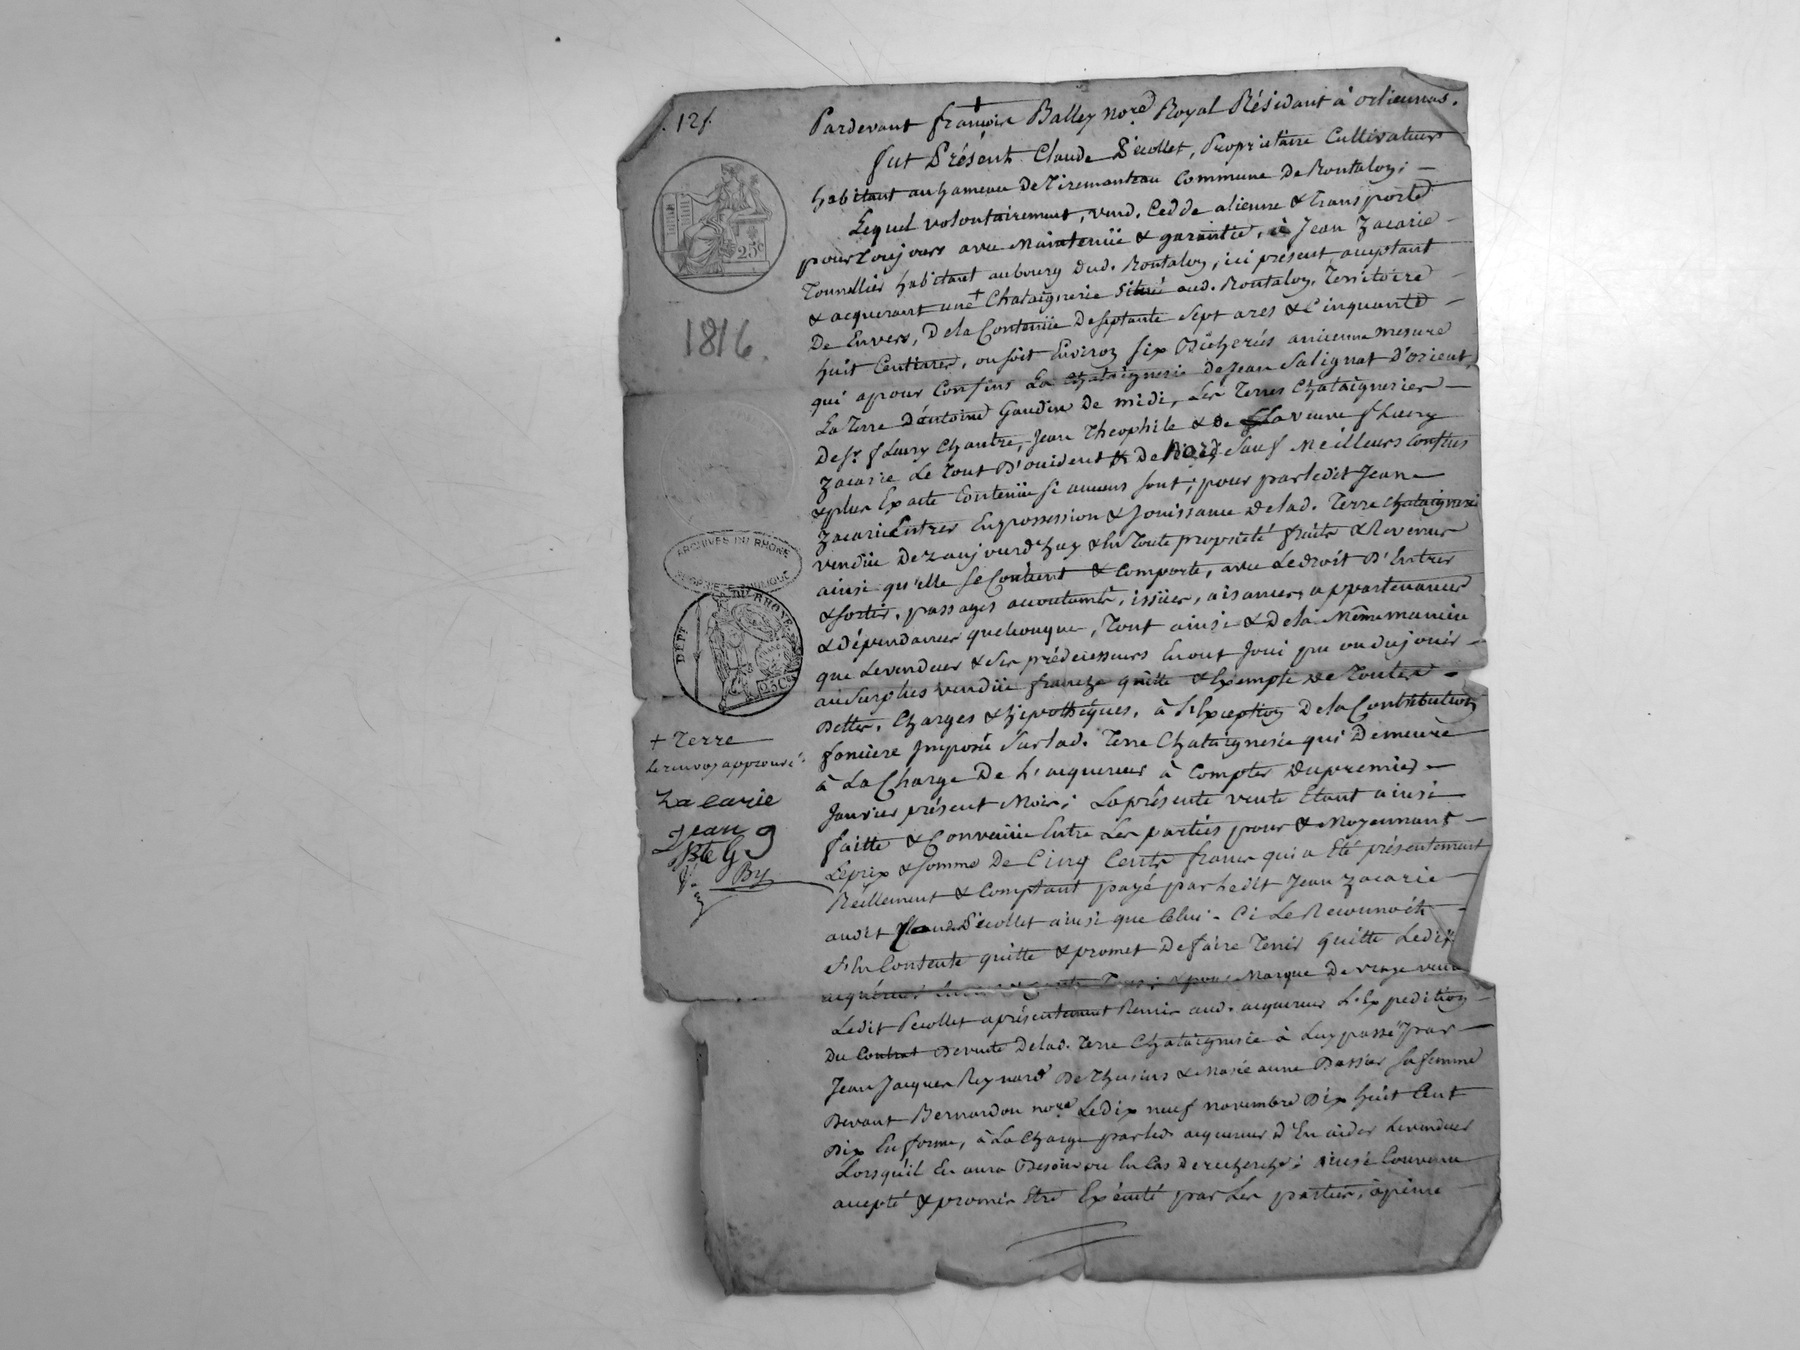 12f
25c
1816.
ARCHIVES DU RHÔNE
DEPT DU RHONE
25C
Pardevant françois Balley nore Royal Résidant à orliennas.
fut Présent Claude Pécollet, Propriétaire Cultivateur
habitant au hameau de Tiremanteau Commune de Rontalon; —
Lequel volontairement, vend, Cedde alienne & Transporte
pour Toujours avec Maintenüe & garantie, à Jean Zacarie —
Tourellier habitant au bourg dud. Rontalon, ici présent, aceptant
& acquerant une + Chataignerie Situé aud. Rontalon, Territoire —
De Envers, De la Contenüe De Septante Sept ares & Cinquante —
huit Centiares, ou soit Environ Six Bicherés ancienne mesure
qui a pour Confins La Chataignerie de Jean Salignat d'orient,
La Terre d'antoine Gaudin De midi, Les Terres Chataigneries —
De Sr. fleury Chantre, Jean Theophile & de La veuve fleury
Zacarie Le Tout D'occident & De Nord, Sauf Meilleurs Confins
& plus Exacte Contenüe Si aucuns Sont; pour par ledit Jean —
Zacarie Entrer En possession & Jouissance de lad. Terre Chataignerie
vendüe Dez aujourd'huy & En Toute propriété fruits & Revenus
ainsi qu'elle Se Contient & Comporte, avec Le droit D'Entrer
& Sortir, passages accoutumés, issües, aisances, appartenances
& dépendances quelconque, Tout ainsi & De la Même maniere
que Le vendeur & Ses prédecesseurs En ont Joui pu ou du jouir —
au Surplus vendüe franche quitte & Exempte De Toutes —
Dettes, Charges & hipothéques, à L'Exception De la Contribution
fonciere Imposée Sur lad. Terre Chataignerie qui Demeure
à La Charge De L'acquereur à Compter du premier —
Janvier présent Mois; La présente vente Etant ainsi
faitte & Convenüe Entre Les parties pour & Moyennant —
Le prix & Somme De Cinq Cents francs qui a Eté présentement
Réellement & Comptant payé par Ledit Jean Zacarie —
audit Claude Pécollet ainsi que Celui-Ci Le Reconnoit —
s'En Contente quitte & promet De faire Tenir quitte Ledit
acquéreur Envers & Contre Tous; & pour Marque De vraye vente
Ledit Pecollet a présentement Remis aud. acquereur L'Expedition —
Du Contrat De vente De lad. Terre Chataignerie à Luy passé par —
Jean Jacques Reynard De Thurins & Marie anne Bassier Sa femme
Devant Bernardon nore Le Dix neuf novembre Dix huit Cent
Dix En forme, à La Charge par led. acquereur D'En aider Le vendeur
Lorsqu'il En aura Besoin ou En Cas De recherche; ainsi Convenu
accepté & promis Etre Exécuté par Les parties, à peine —
+ Terre
Le renvoy approuvé.
Zacarie
Jean
By